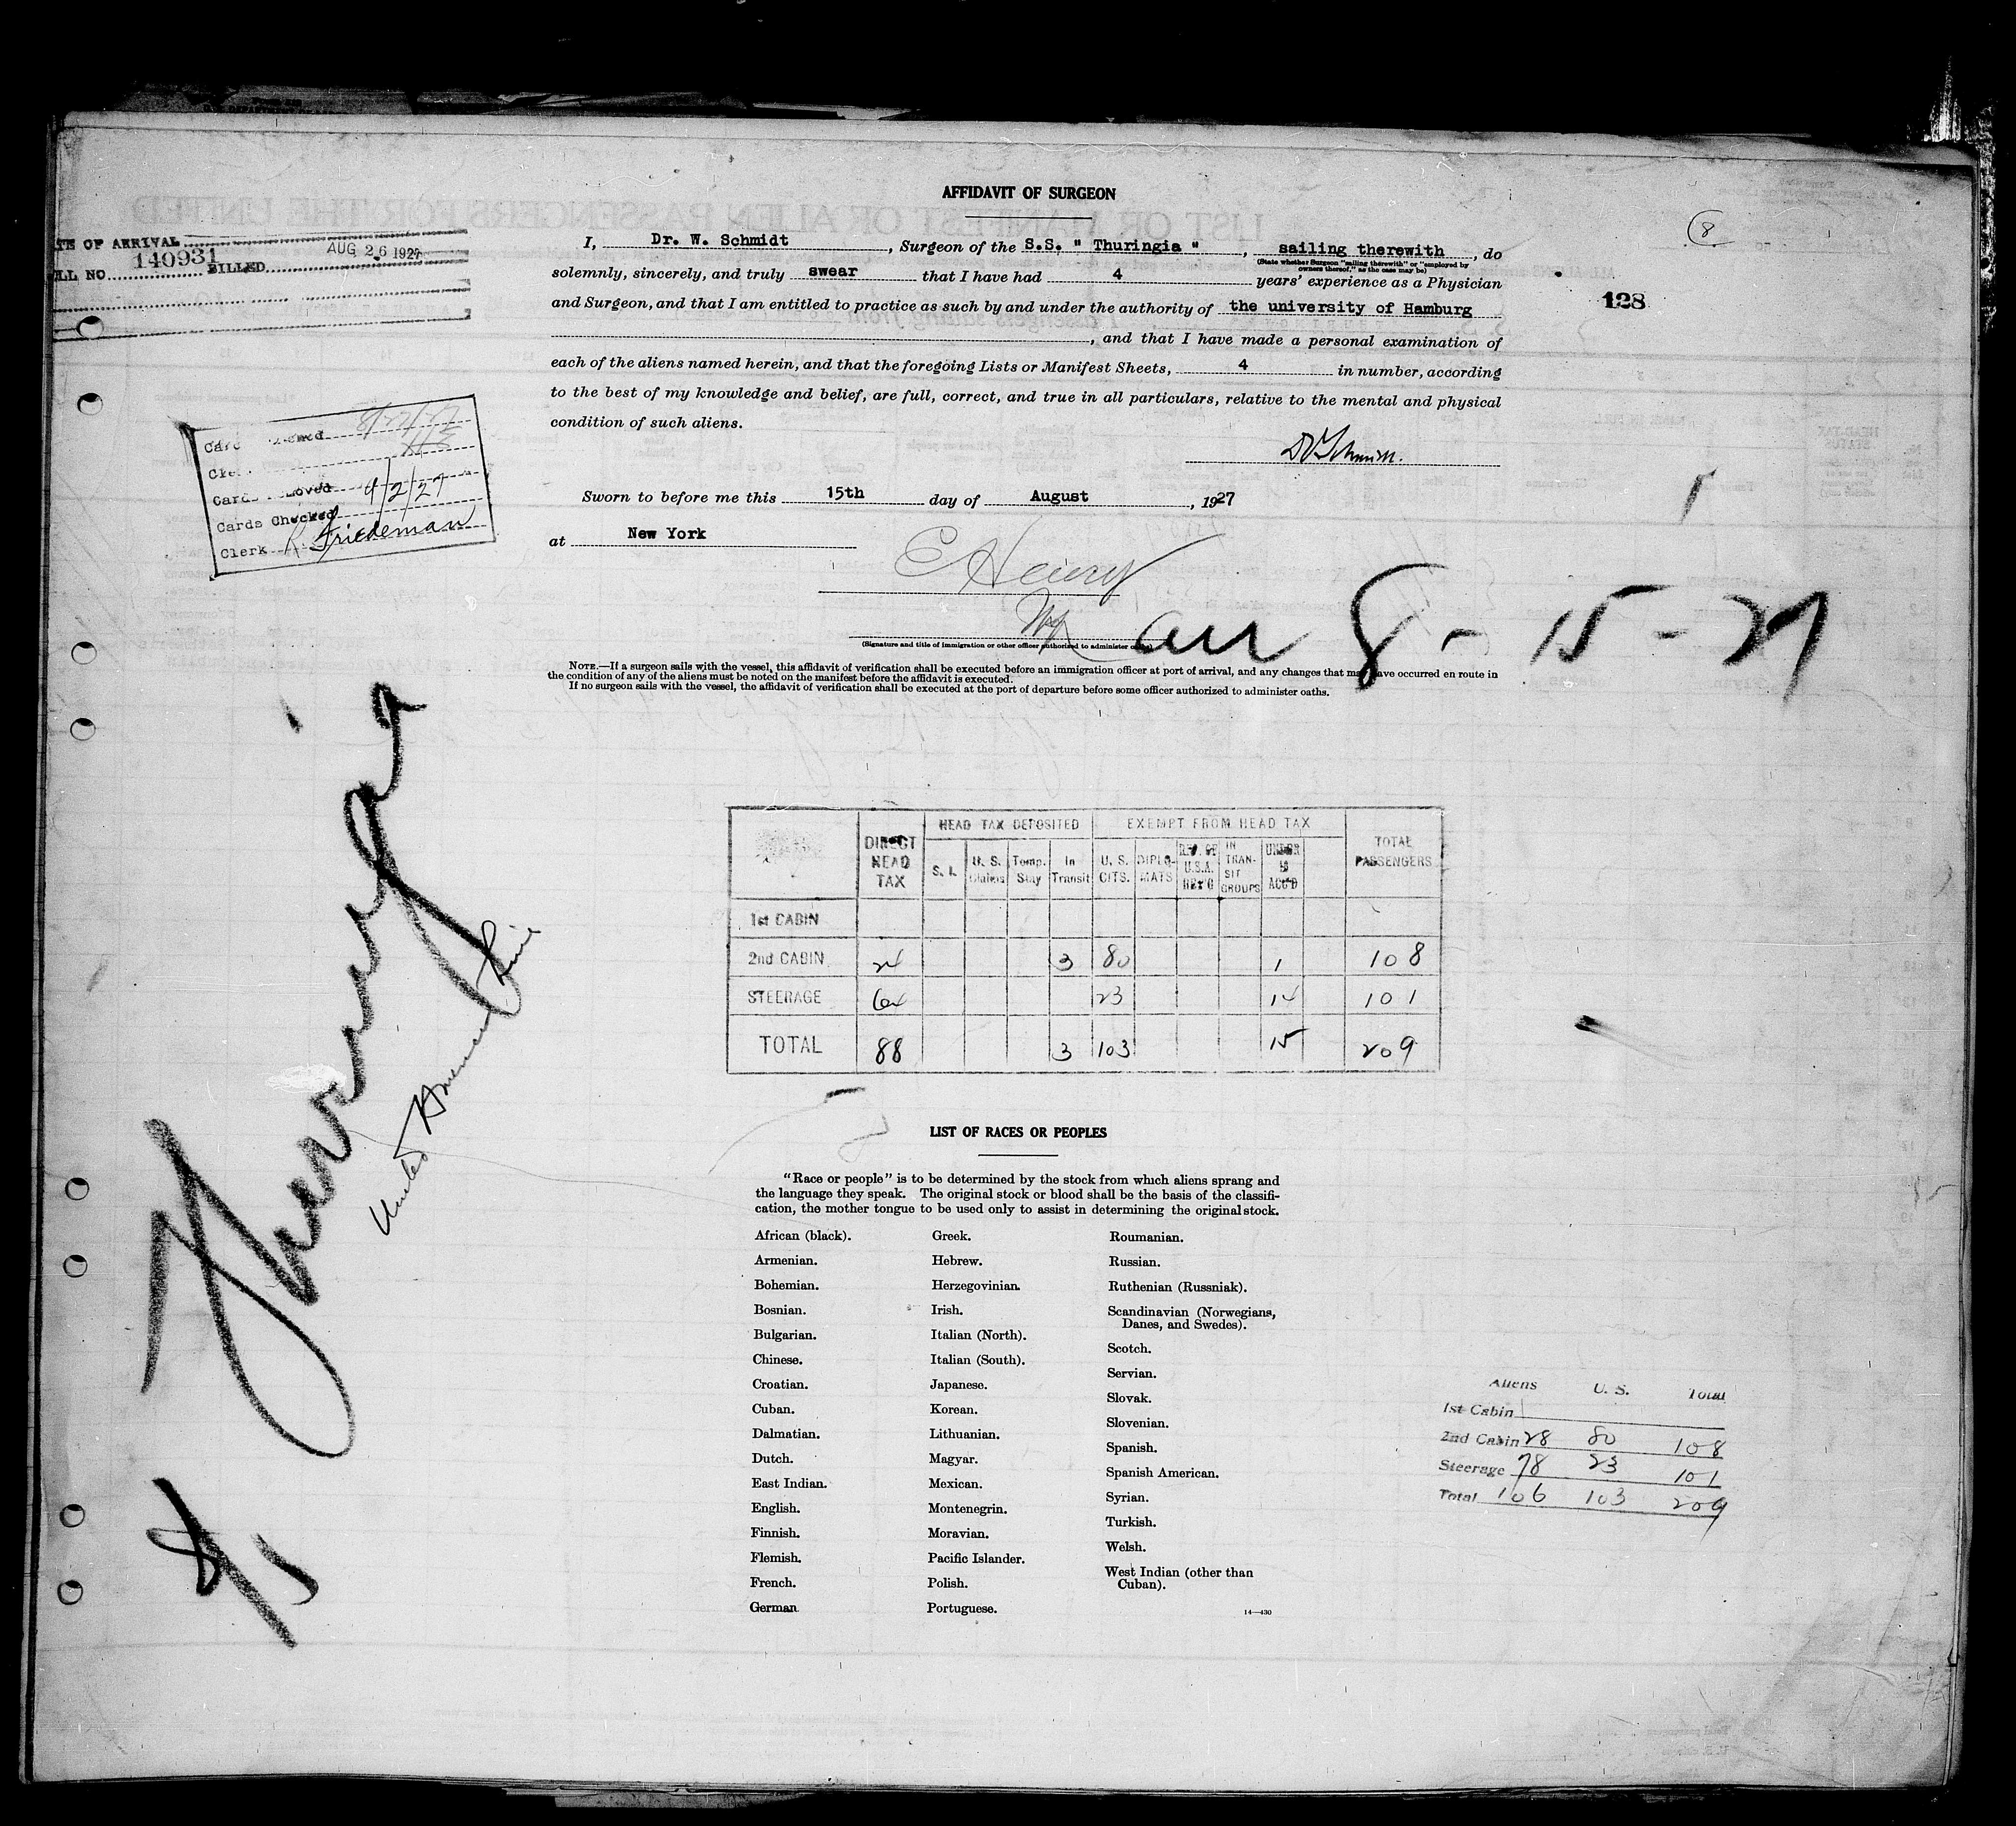 AFFIDAVIT OF SURGEON
TE OF ARRIVAL
LL NO. 140931 BILLED AUG 26 1927
8
128
I, Dr. W. Schmidt, Surgeon of the S.S. " Thuringia ", sailing therewith, do
(State whether Surgeon "sailing therewith" or "employed by owners thereof," as the case may be)
solemnly, sincerely, and truly swear that I have had 4 years' experience as a Physician
and Surgeon, and that I am entitled to practice as such by and under the authority of the university of Hamburg
, and that I have made a personal examination of
each of the aliens named herein, and that the foregoing Lists or Manifest Sheets, 4 in number, according
to the best of my knowledge and belief, are full, correct, and true in all particulars, relative to the mental and physical
condition of such aliens.
Sworn to before me this 15th day of August, 1927
at New York
Cards Checked 9/2/27
Clerk R. Friedeman
arr 8-15-27
(Signature and title of immigration or other officer authorized to administer
NOTE.—If a surgeon sails with the vessel, this affidavit of verification shall be executed before an immigration officer at port of arrival, and any changes that may have occurred en route in
the condition of any of the aliens must be noted on the manifest before the affidavit is executed.
If no surgeon sails with the vessel, the affidavit of verification shall be executed at the port of departure before some officer authorized to administer oaths.
Thuringia
United American Line
8/15
DIRECT HEAD TAX
HEAD TAX DEPOSITED
EXEMPT FROM HEAD TAX
TOTAL PASSENGERS
S. I. U. S. Claims Temp. Stay In Transit U. S. CITS. DIPLO-MATS REP. OF U.S.A. RET'G IN TRAN-SIT GROUPS UNDER 16 ACC'D
1st CABIN
2nd CABIN 24 3 80 1 108
STEERAGE 64 23 14 101
TOTAL 88 3 103 15 209
LIST OF RACES OR PEOPLES
"Race or people" is to be determined by the stock from which aliens sprang and
the language they speak. The original stock or blood shall be the basis of the classifi-
cation, the mother tongue to be used only to assist in determining the original stock.
African (black).
Armenian.
Bohemian.
Bosnian.
Bulgarian.
Chinese.
Croatian.
Cuban.
Dalmatian.
Dutch.
East Indian.
English.
Finnish.
Flemish.
French.
German
Greek.
Hebrew.
Herzegovinian.
Irish.
Italian (North).
Italian (South).
Japanese.
Korean.
Lithuanian.
Magyar.
Mexican.
Montenegrin.
Moravian.
Pacific Islander.
Polish.
Portuguese.
Roumanian.
Russian.
Ruthenian (Russniak).
Scandinavian (Norwegians,
Danes, and Swedes).
Scotch.
Servian.
Slovak.
Slovenian.
Spanish.
Spanish American.
Syrian.
Turkish.
Welsh.
West Indian (other than
Cuban).
14—430
Aliens U. S. Total
1st Cabin
2nd Cabin 28 80 108
Steerage 78 23 101
Total 106 103 209